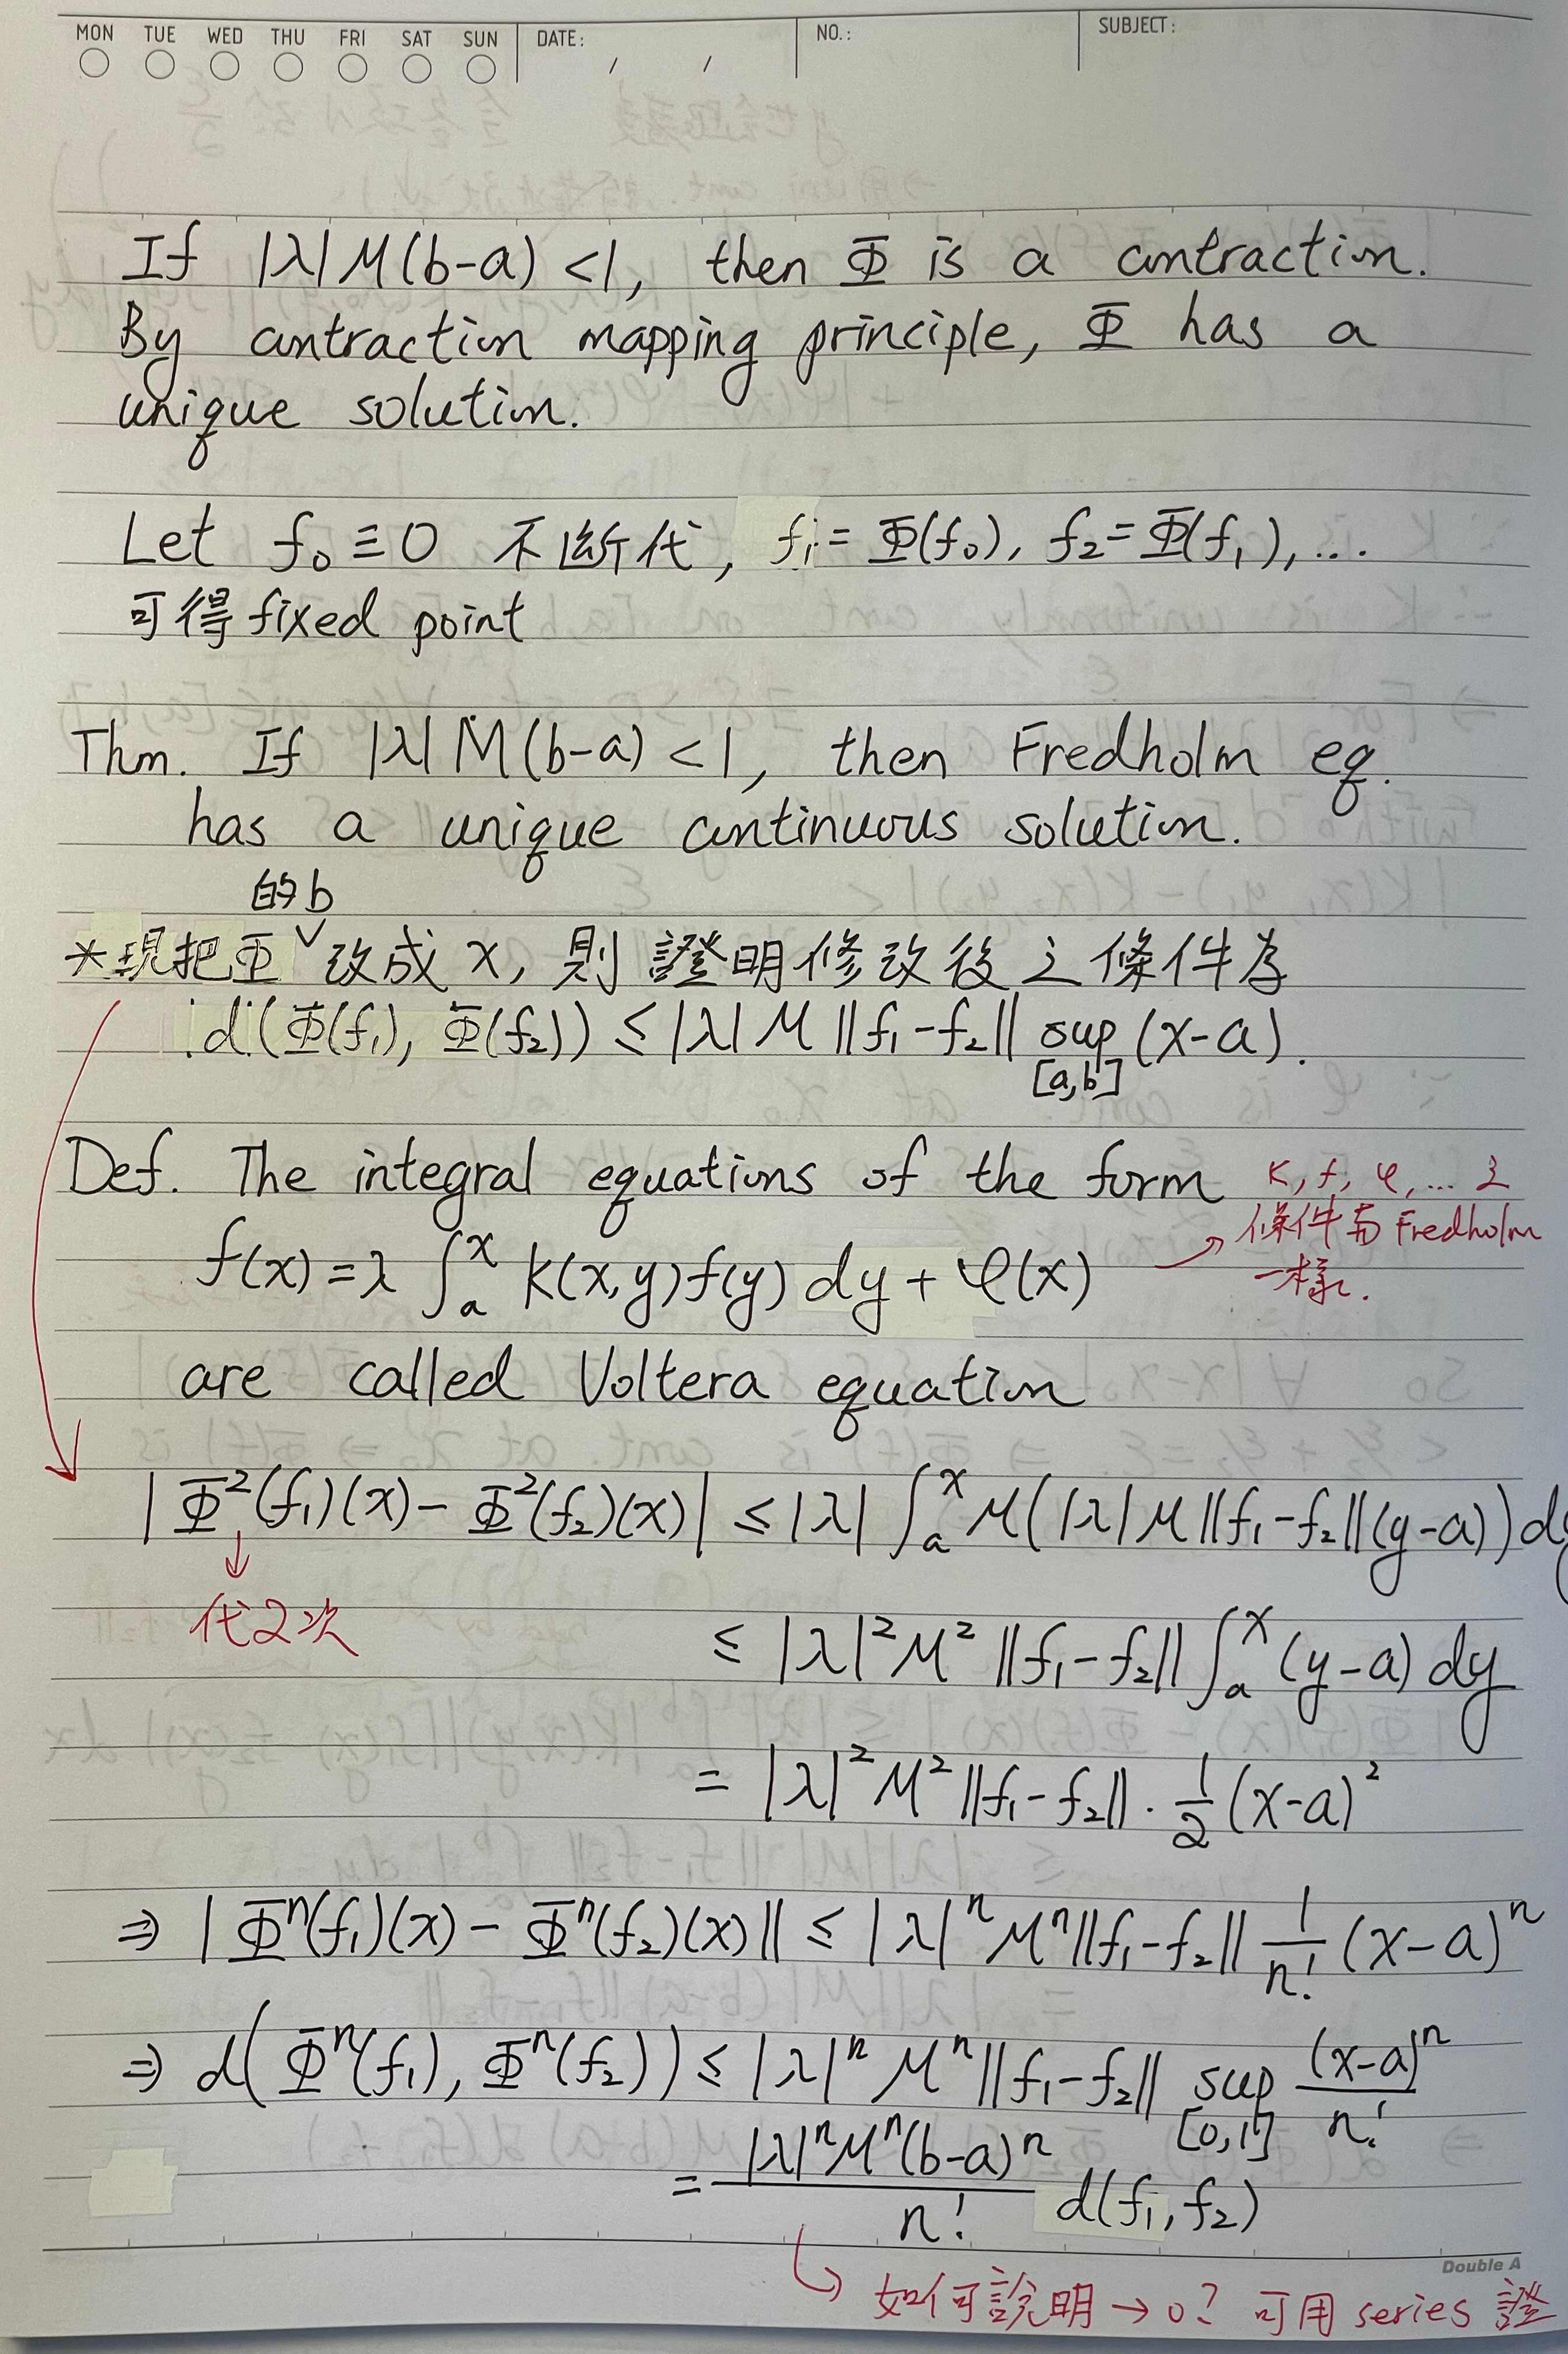 MON TUE WED THU FRI SAT SUN DATE: / / NO.: SUBJECT:
If |λ|M(b-a)<1, then Φ is a contraction.
By contraction mapping principle, Φ has a
unique solution.
Let f₀≡0 不斷代, f₁=Φ(f₀), f₂=Φ(f₁),...
可得fixed point
Thm. If |λ|M(b-a)<1, then Fredholm eq.
has a unique continuous solution.
的b
*現把Φ ∨ 改成 x, 則證明修改後之條件為
d(Φ(f₁), Φ(f₂)) ≤ |λ|M‖f₁-f₂‖ sup (x-a).
[a,b]
Def. The integral equations of the form
K, f, φ,... 之
條件與Fredholm
一樣.
f(x)=λ∫ₐˣ K(x,y)f(y)dy+φ(x) →
are called Voltera equation
|Φ²(f₁)(x)-Φ²(f₂)(x)| ≤ |λ|∫ₐˣ M(|λ|M‖f₁-f₂‖(y-a))dy
↓
代2次
≤ |λ|²M²‖f₁-f₂‖∫ₐˣ (y-a)dy
= |λ|²M²‖f₁-f₂‖·1/2(x-a)²
⇒ |Φⁿ(f₁)(x)-Φⁿ(f₂)(x)‖ ≤ |λ|ⁿMⁿ‖f₁-f₂‖ 1/n! (x-a)ⁿ
⇒ d(Φⁿ(f₁), Φⁿ(f₂)) ≤ |λ|ⁿMⁿ‖f₁-f₂‖ sup (x-a)ⁿ/n!
[0,1]
= |λ|ⁿMⁿ(b-a)ⁿ/n! d(f₁,f₂)
Double A
↳ 如何說明→0? 可用series證